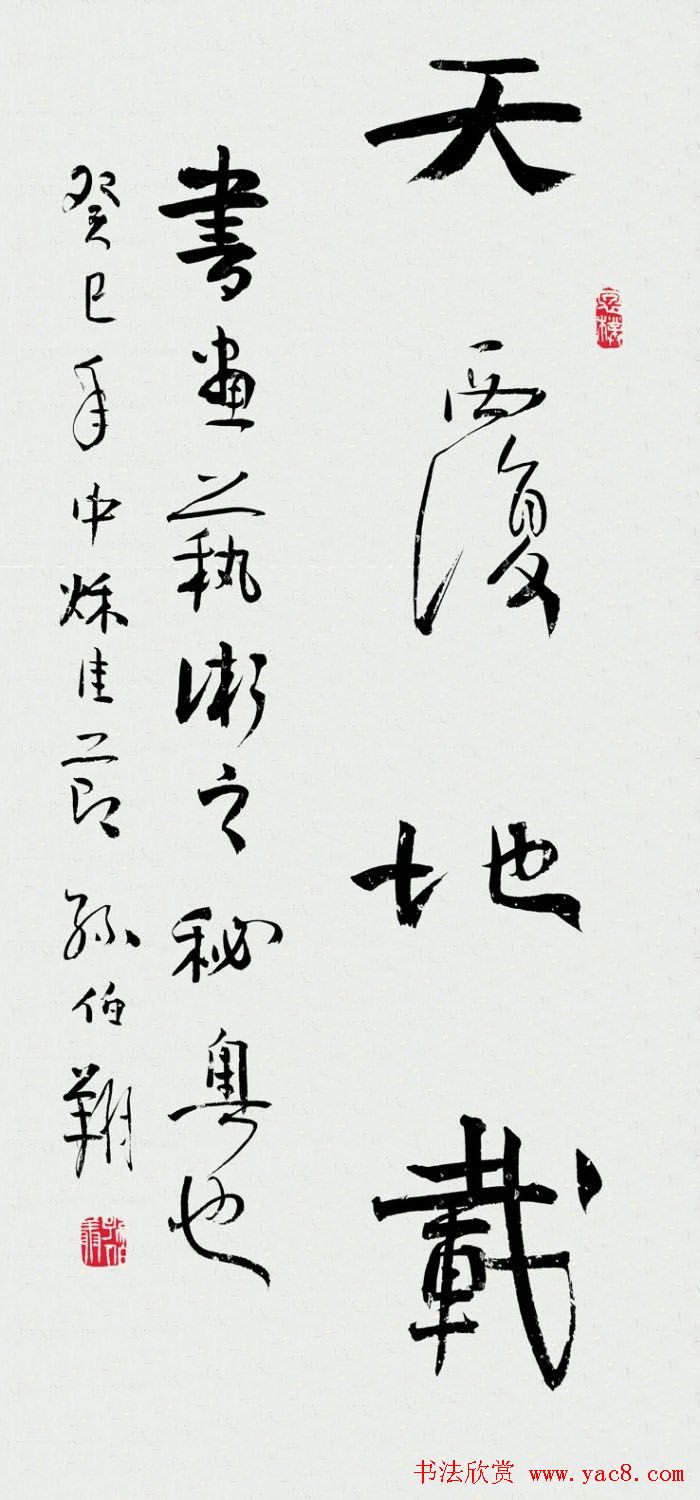 天覆地載
書畫藝術之秘奥也
癸巳年中秌佳節孫伯翔
书法欣赏 www.yac8.com